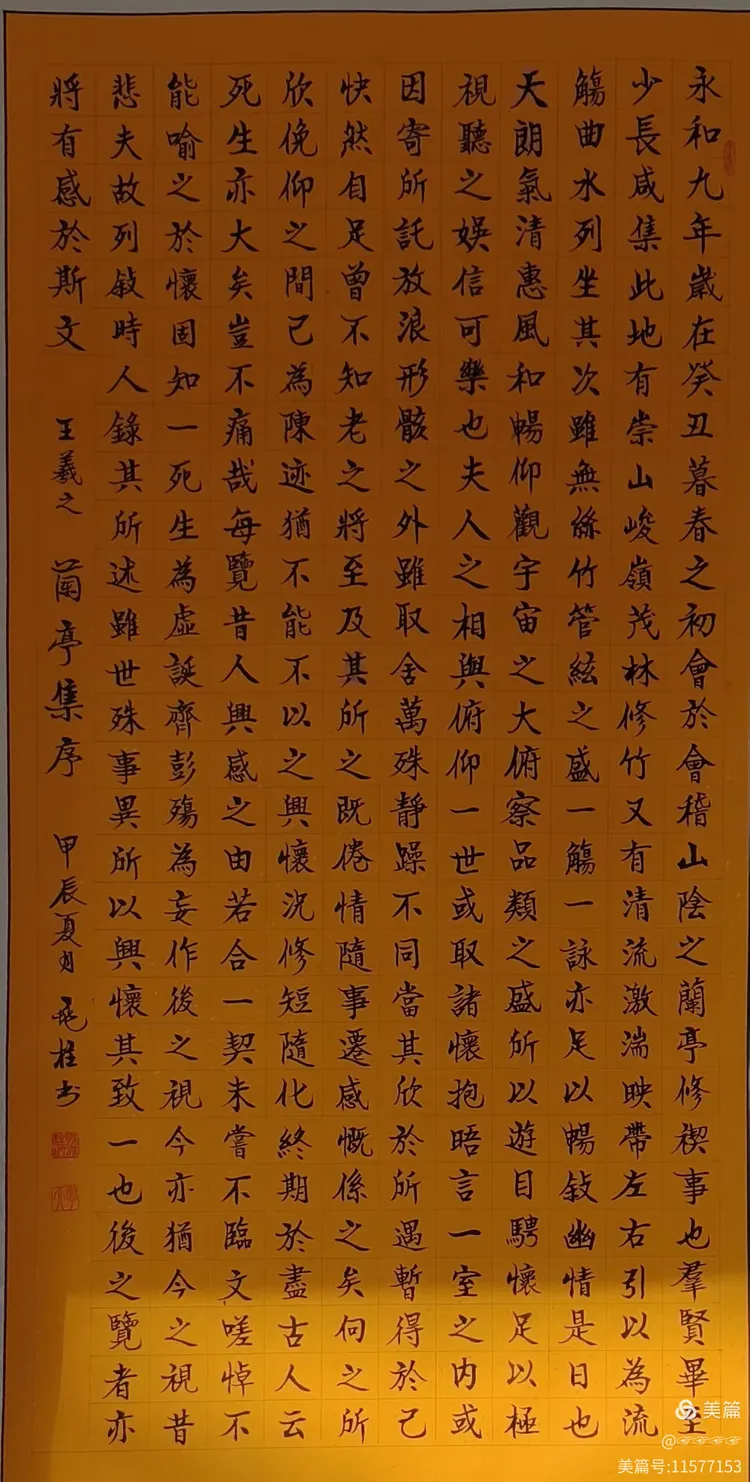 永和九年歲在癸丑暮春之初會於會稽山陰之蘭亭修禊事也羣賢畢至
少長咸集此地有崇山峻嶺茂林修竹又有清流激湍映帶左右引以為流
觴曲水列坐其次雖無絲竹管絃之盛一觴一詠亦足以暢敍幽情是日也
天朗氣清惠風和暢仰觀宇宙之大俯察品類之盛所以遊目騁懷足以極
視聽之娛信可樂也夫人之相與俯仰一世或取諸懷抱晤言一室之内或
因寄所託放浪形骸之外雖取舍萬殊靜躁不同當其欣於所遇暫得於己
快然自足曾不知老之將至及其所之既倦情隨事遷感慨係之矣向之所
欣俛仰之間已為陳迹猶不能不以之興懷況修短隨化終期於盡古人云
死生亦大矣豈不痛哉每覽昔人興感之由若合一契未嘗不臨文嗟悼不
能喻之於懷固知一死生為虛誕齊彭殤為妄作後之視今亦猶今之視昔
悲夫故列敍時人錄其所述雖世殊事異所以興懷其致一也後之覽者亦
將有感於斯文 王羲之 蘭亭集序 甲辰夏月 桂书
美篇
美篇号:11577153